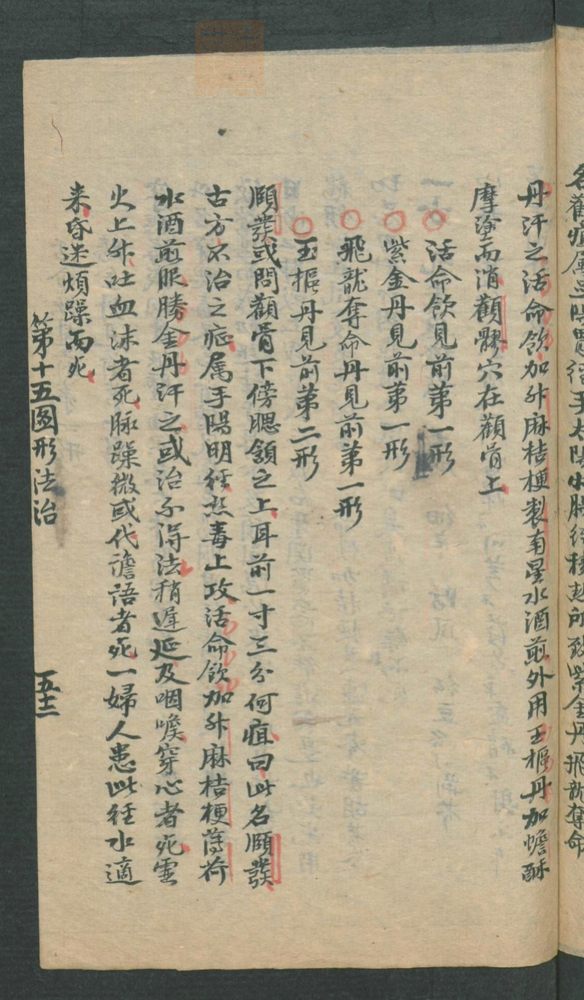 名顴疽屬三陽
丹汗之活命飲加升麻桔梗製南星水酒煎外用玉樞丹加蟾酥
摩塗而消顴髎穴在顴骨上
○活命飲見前第一形
○紫金丹見前第一形
○飛龍奪命丹見前第一形
○玉樞丹見前第二形
頤發或問顴骨下傍腮頷之上耳前一寸三分何疽曰此名頤發
古方不治之症属手陽明經熱毒上攻活命飲加升麻桔梗薄荷
水酒煎服勝金丹汗之或治不得法稍遲延及咽喉穿心者死雲
火上升吐血沫者死脉躁微或代譫語者死一婦人患此经水適
来昏迷煩躁而死
第十五圖形法治
五十二